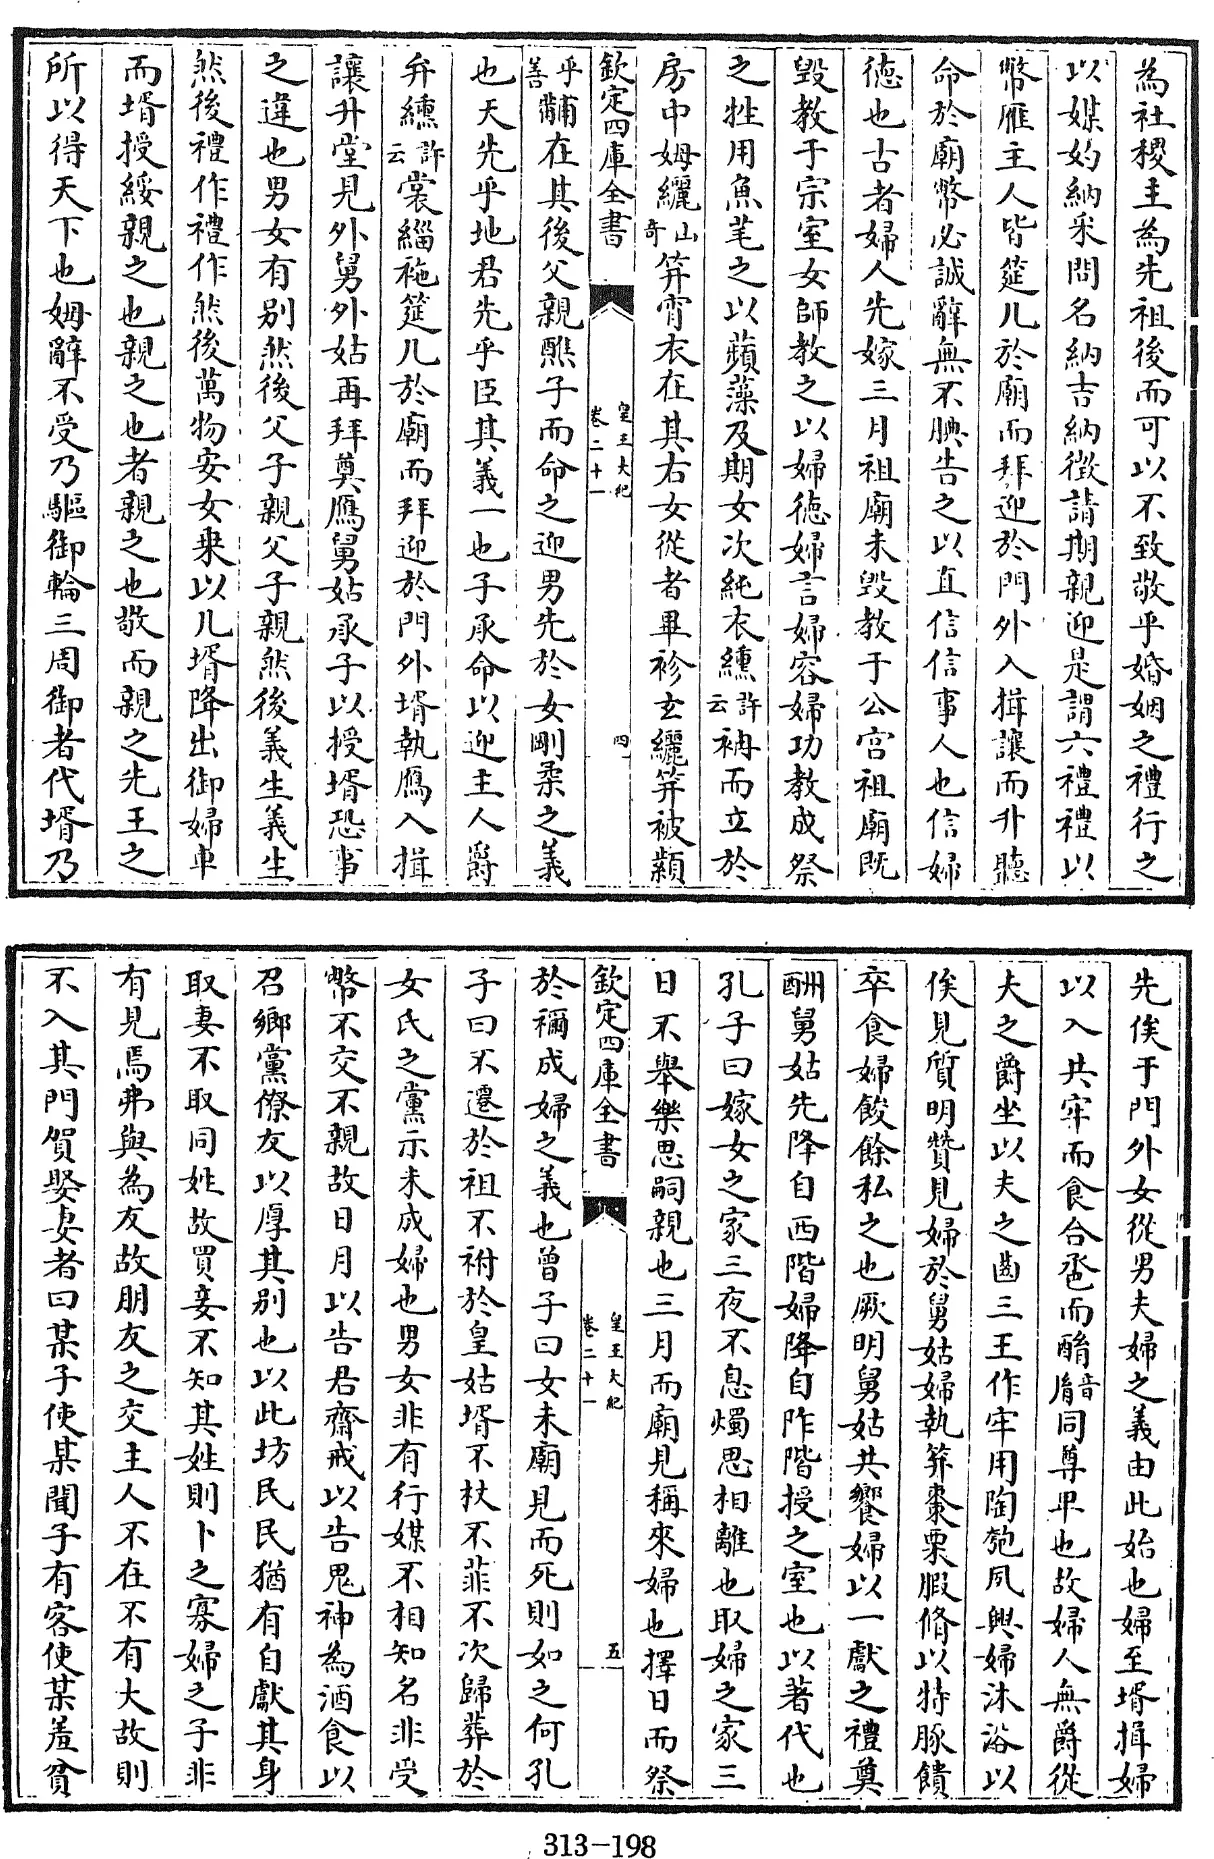 為社稷主為先祖後而可以不致敬乎婚姻之禮行之
以媒妁納采問名納吉納徵請期親迎是謂六禮禮以
幣雁主人皆筵几於廟而拜迎於門外入揖讓而升聽
命於廟幣必誠辭無不腆告之以直信信事人也信婦
德也古者婦人先嫁三月祖廟未毀教于公宮祖廟既
毀教于宗室女師教之以婦德婦言婦容婦功教成祭
之牲用魚芼之以蘋藻及期女次純衣纁許云袡而立於
房中姆纚山奇筓宵衣在其右女從者畢袗玄纚筓被顈
欽定四庫全書 皇王大紀卷二十一 四
乎善黼在其後父親醮子而命之迎男先於女剛柔之義
也天先乎地君先乎臣其義一也子承命以迎主人爵
弁纁許云裳緇袘筵几於廟而拜迎於門外壻執鴈入揖
讓升堂見外舅外姑再拜奠鴈舅姑承子以授壻恐事
之違也男女有別然後父子親父子親然後義生義生
然後禮作禮作然後萬物安女乗以几壻降出御婦車
而壻授綏親之也親之也者親之也敬而親之先王之
所以得天下也姆辭不受乃驅御輪三周御者代壻乃
先俟于門外女從男夫婦之義由此始也婦至壻揖婦
以入共牢而食合巹而酳音胤同尊卑也故婦人無爵從
夫之爵坐以夫之齒三王作牢用陶匏夙興婦沐浴以
俟見質明贊見婦於舅姑婦執筓棗栗腶脩以特豚饋
卒食婦餕餘私之也厥明舅姑共饗婦以一獻之禮奠
酬舅姑先降自西階婦降自阼階授之室也以著代也
孔子曰嫁女之家三夜不息燭思相離也取婦之家三
日不舉樂思嗣親也三月而廟見稱來婦也擇日而祭
欽定四庫全書 皇王大紀卷二十一 五
於禰成婦之義也曾子曰女未廟見而死則如之何孔
子曰不遷於祖不祔於皇姑壻不杖不菲不次歸葬於
女氏之黨示未成婦也男女非有行媒不相知名非受
幣不交不親故日月以告君齋戒以告鬼神為酒食以
召鄉黨僚友以厚其別也以此坊民民猶有自獻其身
取妻不取同姓故買妾不知其姓則卜之寡婦之子非
有見焉弗與為友故朋友之交主人不在不有大故則
不入其門賀娶妻者曰某子使某聞子有客使某羞貧
313-198